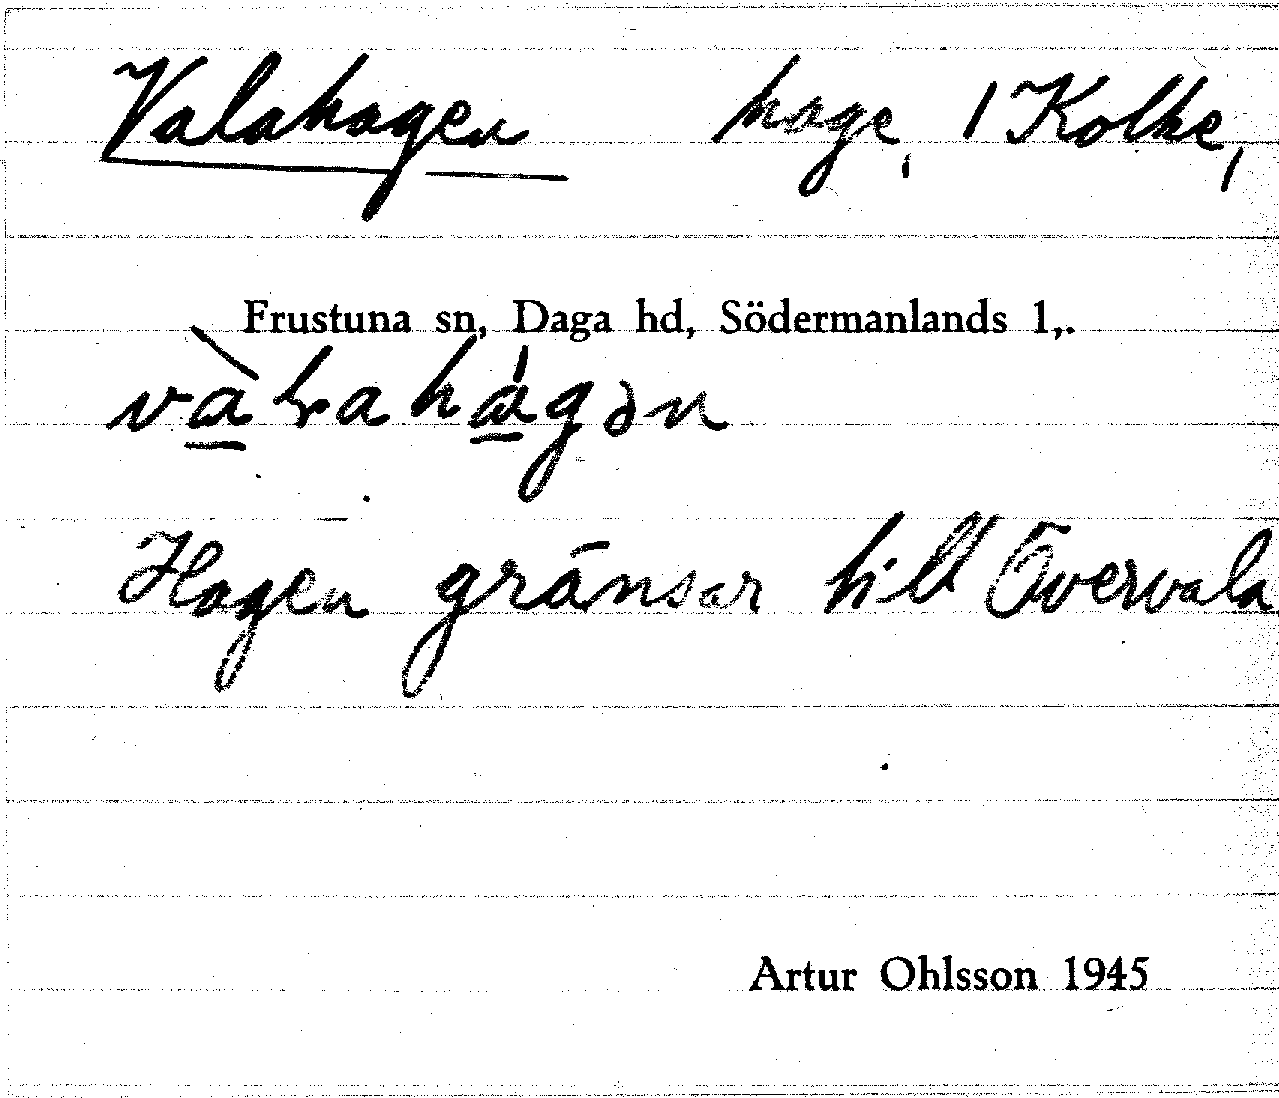 Valahagen hage, 1 Kolke,
Frustuna sn, Daga hd, Södermanlands l,.
Hagen gränsar till Övervala
Artur Ohlsson 1945